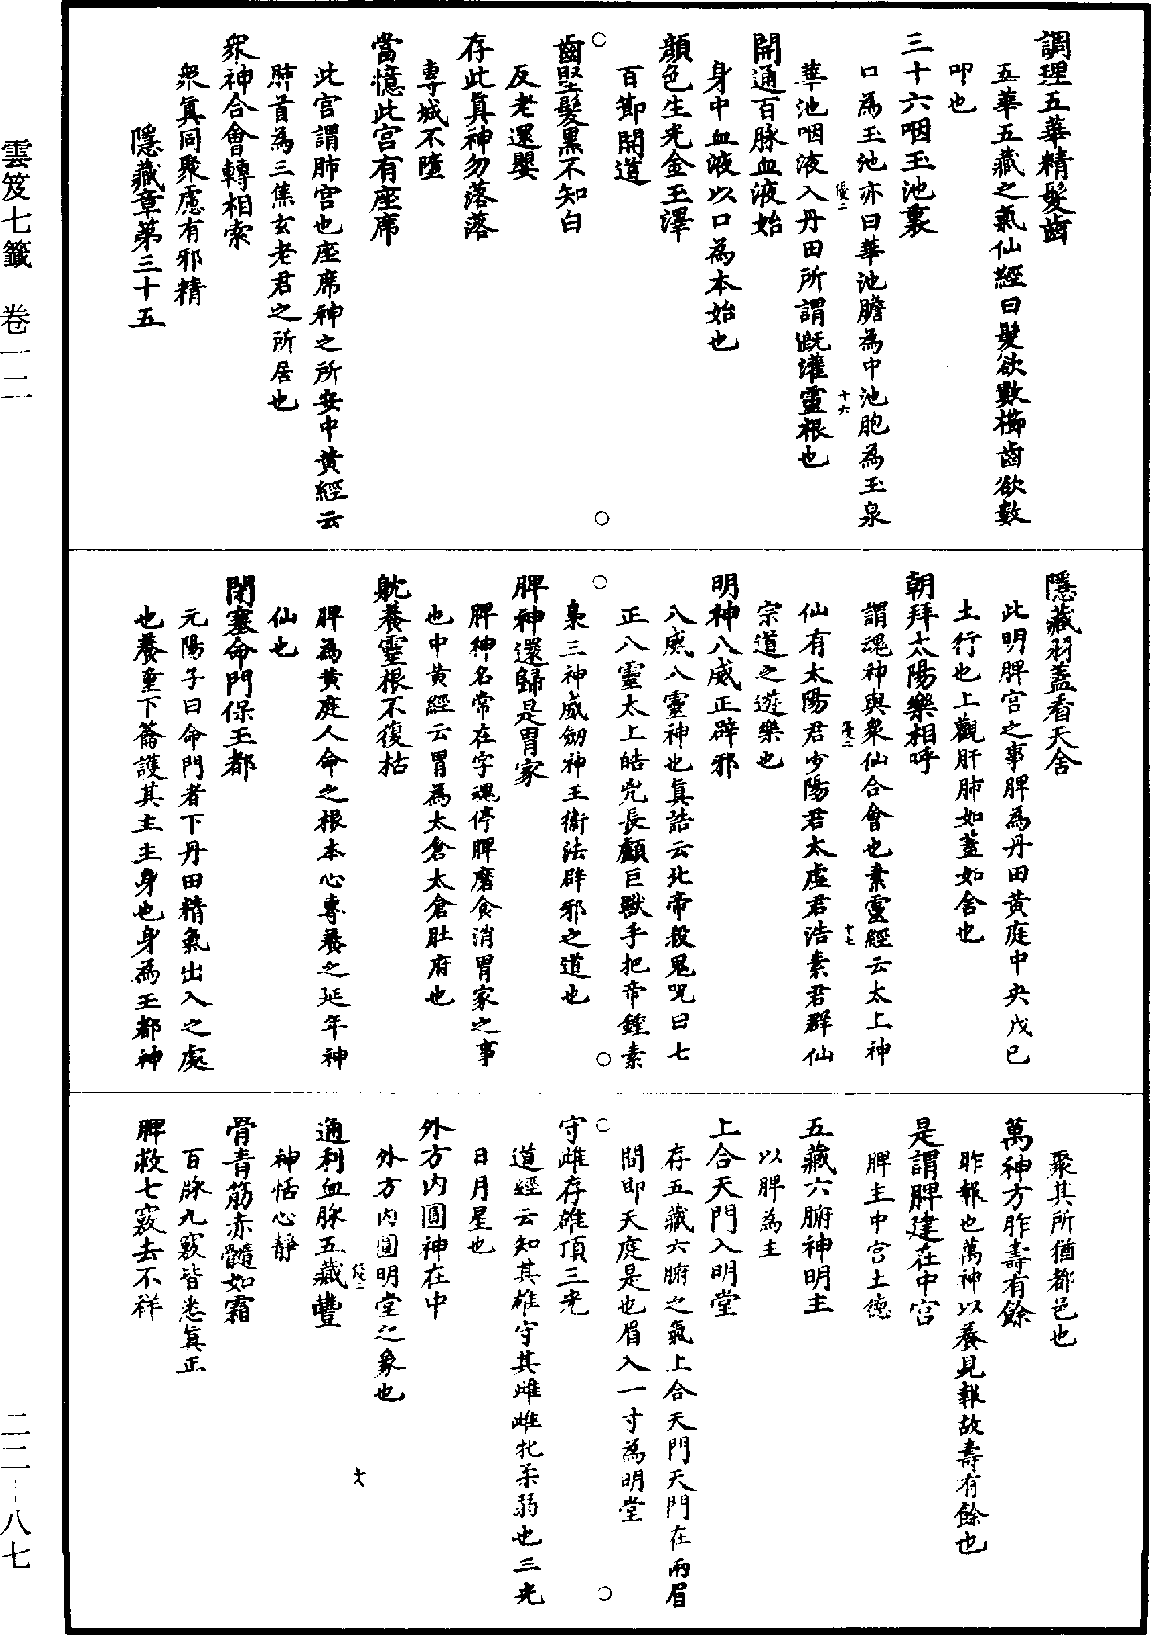 調理五華精髮齒
五華五藏之氣仙經曰髮欲數櫛齒欲數
叩也
三十六咽玉池裏
口為玉池亦曰華池膽為中池胞為玉泉
華池咽液入丹田所謂溉灌靈根也
開通百脉血液始
身中血液以口為本始也
顏色生光金玉澤
百節開道
齒堅髮黑不知白
反老還嬰
存此真神勿落落
專誠不墮
當憶此宮有座席
此宮謂肺宮也座席神之所安中黃經云
肺首為三焦玄老君之所居也
眾神合會轉相索
衆真同聚慮有邪精
隱藏章第三十五
隱藏羽蓋看天舍
此明脾宮之事脾為丹田黃庭中央戊己
土行也上觀肝肺如蓋如舍也
朝拜太陽樂相呼
謂魂神與眾仙合會也素靈經云太上神
仙有太陽君少陽君太虛君浩素君群仙
宗道之遊樂也
明神八威正辟邪
八威八靈神也真誥云北帝殺鬼咒曰七
正八靈太上皓兇長顱巨獸手把帝鍾素
梟三神威劒神王衛法辟邪之道也
脾神還歸是胃家
脾神名常在字魂停脾磨食消胃家之事
也中黃經云胃為太倉太倉肚府也
躭養靈根不復枯
脾為黃庭人命之根本心專養之延年神
仙也
閉塞命門保玉都
元陽子曰命門者下丹田精氣出入之處
也養童下籥護其主主身也身為玉都神
聚其所猶都邑也
萬神方胙壽有餘
胙報也萬神以養見報故壽有餘也
是謂脾建在中宮
脾主中宮土德
五藏六腑神明主
以脾為主
上合天門入明堂
存五藏六腑之氣上合天門天門在兩眉
間即天庭是也眉入一寸為明堂
守雌存雄頂三光
道經云知其雄守其雌雌牝柔弱也三光
日月星也
外方內圓神在中
外方內圓明堂之象也
通利血脉五藏豐
神恬心靜
骨青筋赤髓如霜
百脉九竅皆悉真正
脾救七竅去不祥
雲笈七籤　卷一二
二二—八七